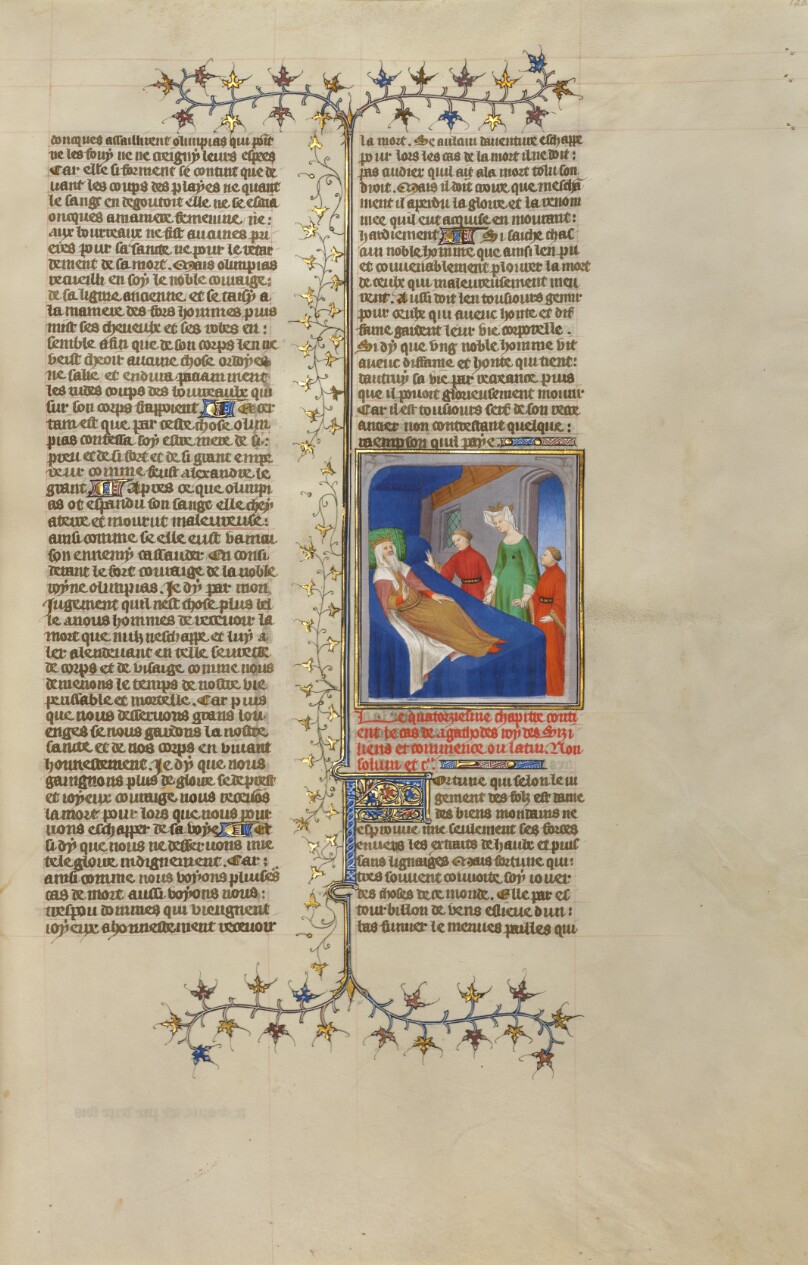 doncques assaillirent olimpias qui point
ne les fouy ne ne creigny leurs espees
Car elle si forment se contint que de
uant les coups des playes ne quant
le sang en degoutoit elle ne se essaia
oncques a maniere femenine ne:
aux bourreaux ne fist aucunes pri
eres pour sa sante ne pour le retar
dement de sa mort. Mais olimpias
recueilli en soy le noble couraige:
de sa ligne ancienne et se taisy a
la maniere des fors hommes puis
mist ses cheueulx et ses robes en:
semble afin que de son corps len ne
veist cheoir aucune chose
ne salie et endura paciamment
les rudes coups des bourreaulx qui
sur son corps frapoient A cer
tain est que par ceste chose olim
pias confessa soy estre mere de si:
preu et de si fort et de si grant empe
reur comme feust alexandre le
grant Apres ce que olimpi
as ot espandu son sang elle chey
aterre et mourut maleureuse:
ainsi comme se elle eust vaincu
son ennemy cassander En consi
derant le fort couraige de la noble
royne olimpias. Je dy par mon
Jugement quil nest chose plus bel
le a nous hommes de receuoir la
mort que nulz neschappe et luy a
ler alencontre en telle seurete
de corps et de visaige comme nous
demenons le temps de nostre vie
perissable et mortelle. Car puis
que nous desseruons grans lou
enges se nous gardons la nostre
sante et de nos corps en viuant
honnestement. Je dy que nous
gaingnons plus de gloire se de prest
et ioyeux couraige nous receuons
la mort pour lors que nous pour
rions eschapper de sa voye Et
si dy que nous ne desseruons mie
tele gloire indignement. Car:
ainsi comme nous voyons pluseurs
cas de mort aussi voyons nous:
trespou dommes qui viengnent
ioyeux a honnestement receuoir
la mort. Se aulcun dauenture eschappe
pour lors les cas de la mort il ne doit:
pas cuidier quil ait a la mort tolu son
droit. Mais il doit croire que mescha
ment il a perdu la gloire et la renom
mee quil eut acquise en mourant:
hardiement Si saiche chas
cun noble homme que ainsi len pu
et conuenablement plourer la mort
de ceulx qui maleureusement meu
rent. Aussi doit len tousiours gemir
pour ceulx qui auecc honte et dif
fame gardent leur vie corporelle.
Si dy que vng noble homme vit
auecc diffame et honte qui tient:
tandruy sa vie par recreance puis
que il pouoit glorieusement mourir
Car il est tousiours serf de son recre
ancier non contrestant quelque:
raempson quil paye
Le quatorziesme chapitre conti
ent le cas de agathodes roy des Sizi
liens et commence ou latin. Non
solum et c.
Fortune qui selon le iu
gement des folz est dame
des biens mondains ne
espreuue mie seulement ses forces
enuers les extrais de hault et puis
sans lignaiges Mais fortune qui:
tres souuent conuoite soy iouer
des choses de ce monde. Elle par es
tourbillon de vens eslieue dun:
bas fumier le menues pailles qui